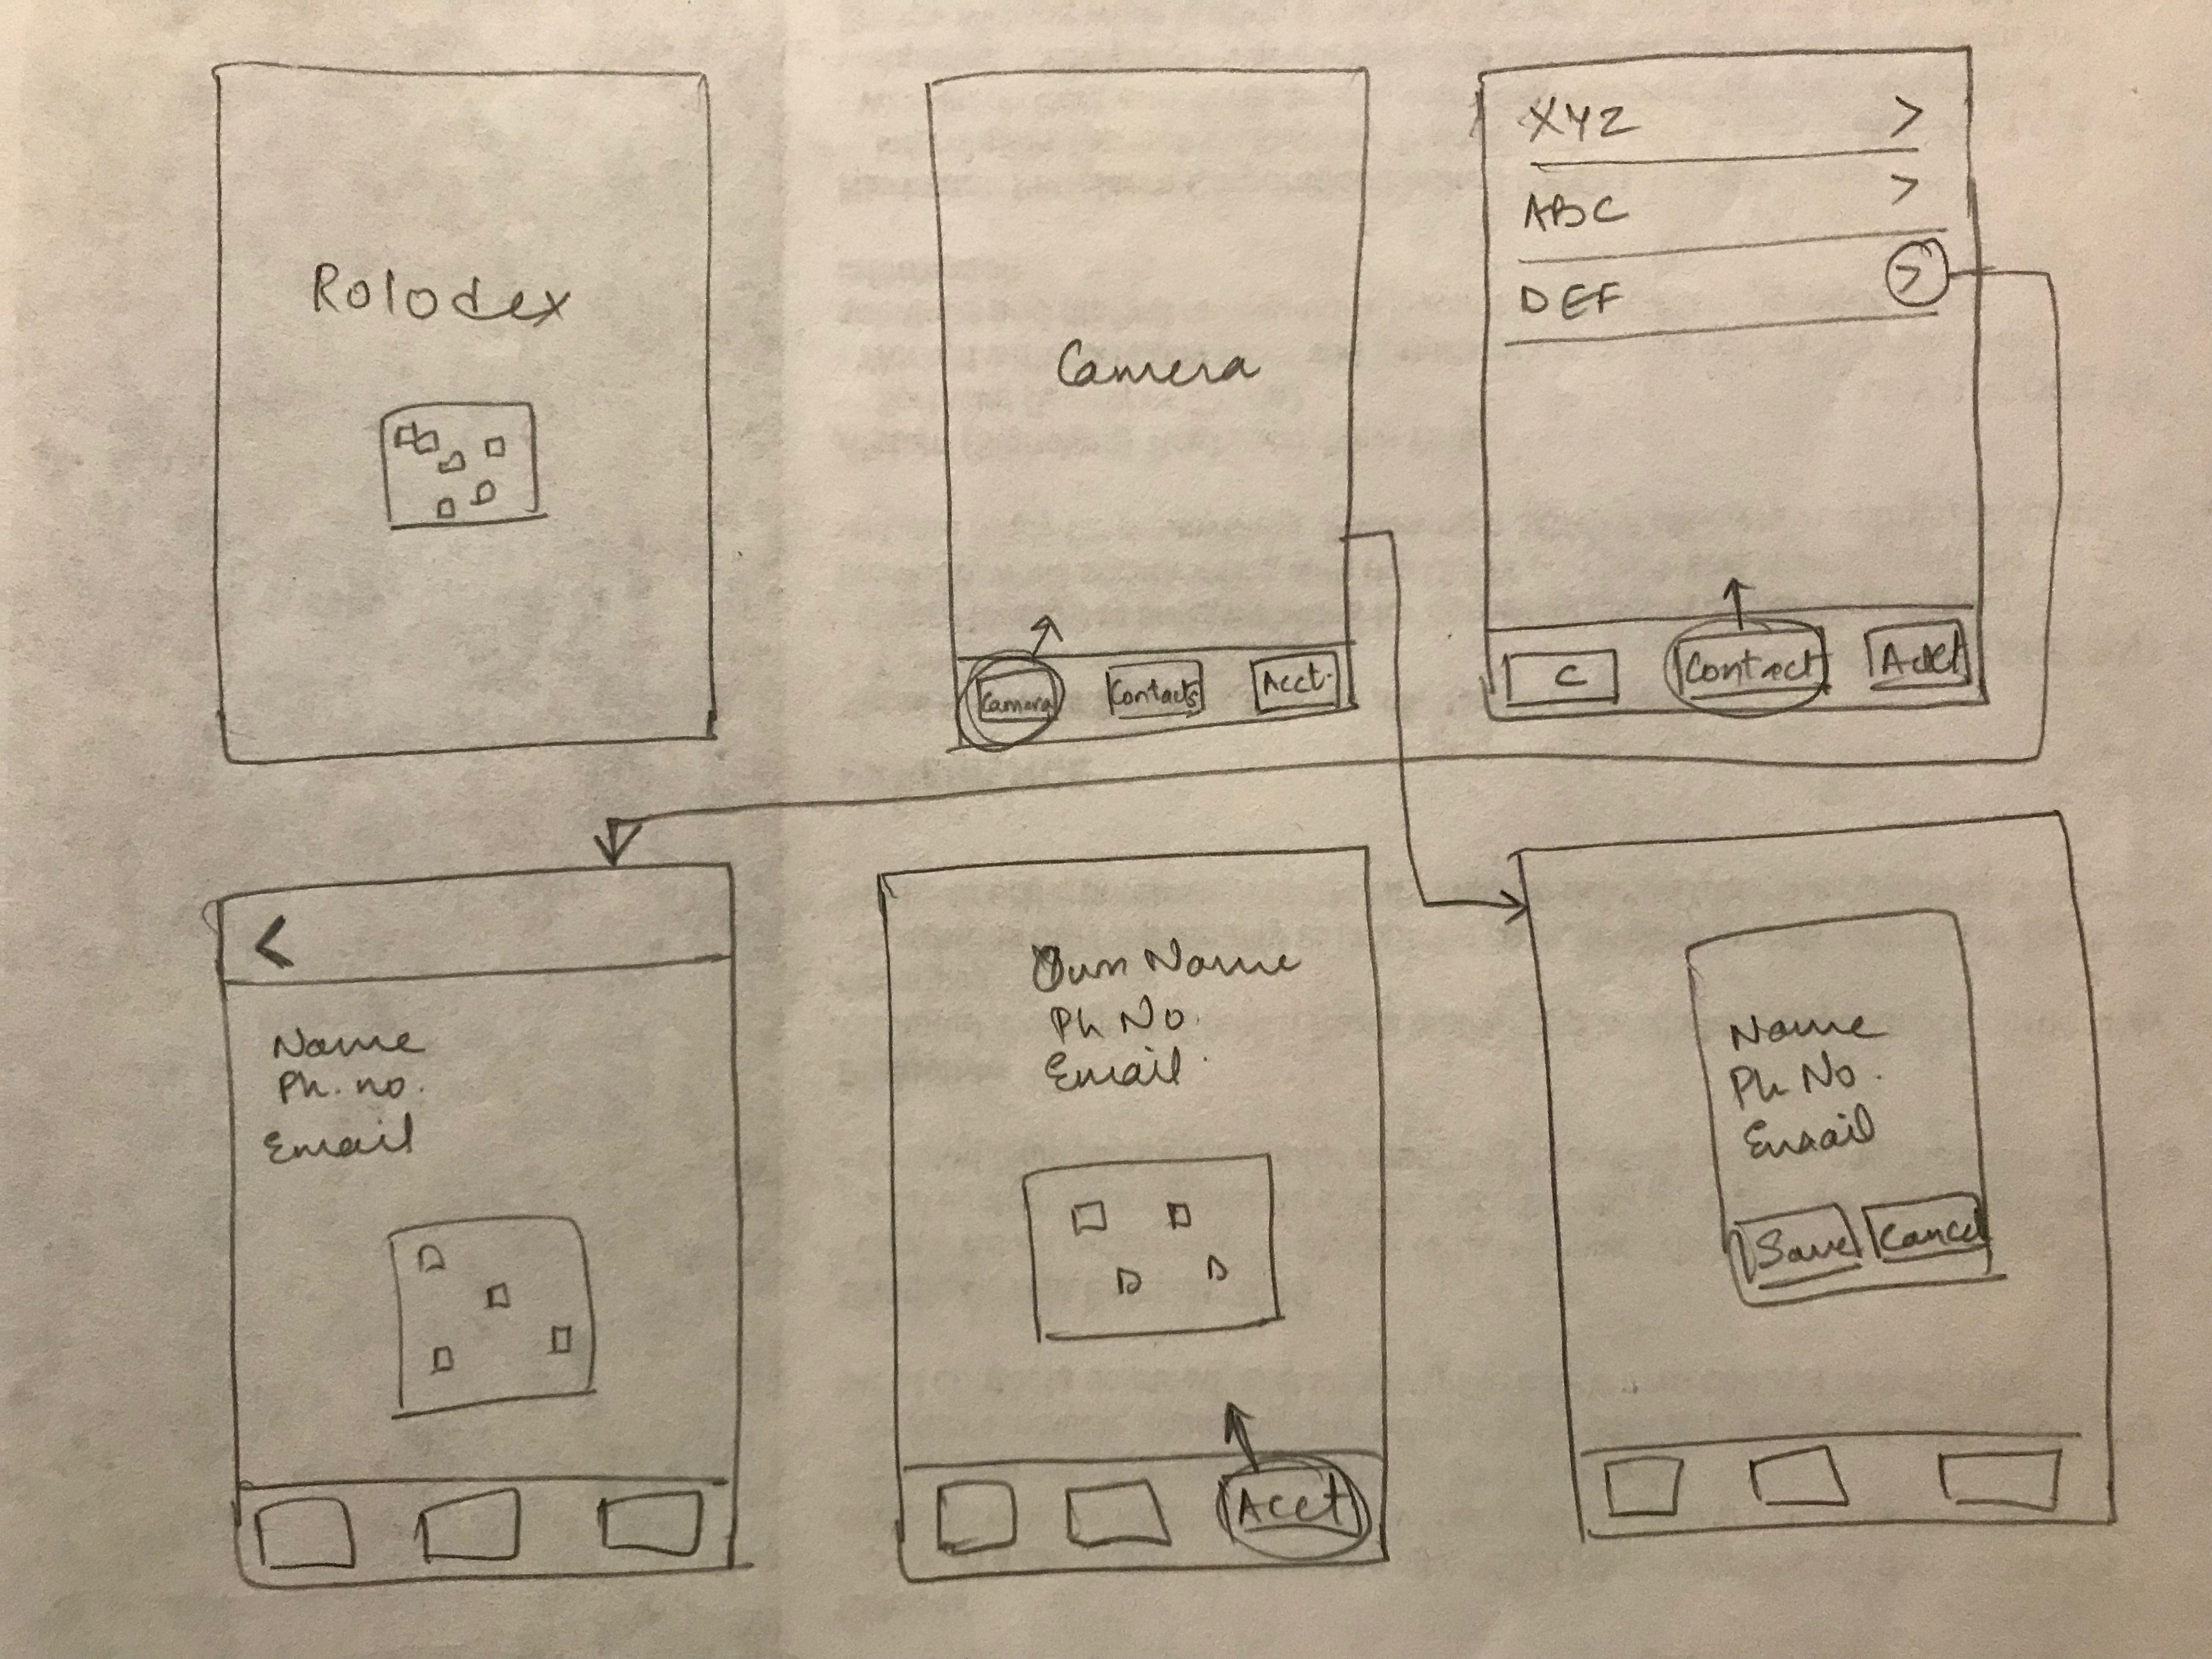 Rolodex
Camera
Camera Contacts Acct.
XYZ >
ABC >
DEF >
C Contact Acct
<
Name
Ph. no.
Email
Own Name
Ph No.
Email
Acct
Name
Ph No.
Email
Save Cancel